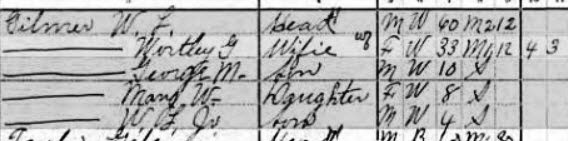 Gilmer W. L. Head M W 60 M2 12
Wortley G Wife F W 33 M1 12 4 3
George M. Son M W 10 S
Mary W. Daughter F W 8 S
W. L. Jr. Son M W 4 S